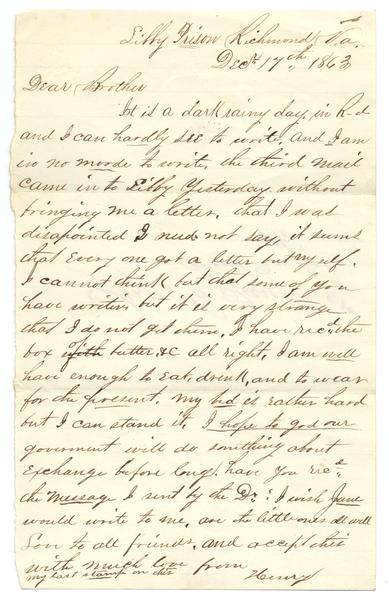 Libby Prison Richmond, Va.
Dec 17th, 1863
Dear Brother
It is a dark rainy day, in R-d
and I can hardly see to write, and I am
in no moode to write, the third mail
came in to Libby Yesterday without
bringing me a letter, that I was
disapointed I need not say, it sums
that Every one got a letter but my self.
I cannot think but that some of you
have writen, but it is very strange
that I do not get them, I have ric'd the
box with butter, &c all right, I am well
have enough to Eat, drink, and to wear
for the present, my bd is rather hard
but I can stand it, I hope to god our
goverment will do something about
Exchange before long. have you ric'd
the message I sent by the Dr. I wish Jane
would write to me, are the little ones all well
Love to all friends, and accept this
with much love from
my last stamp on this Henry